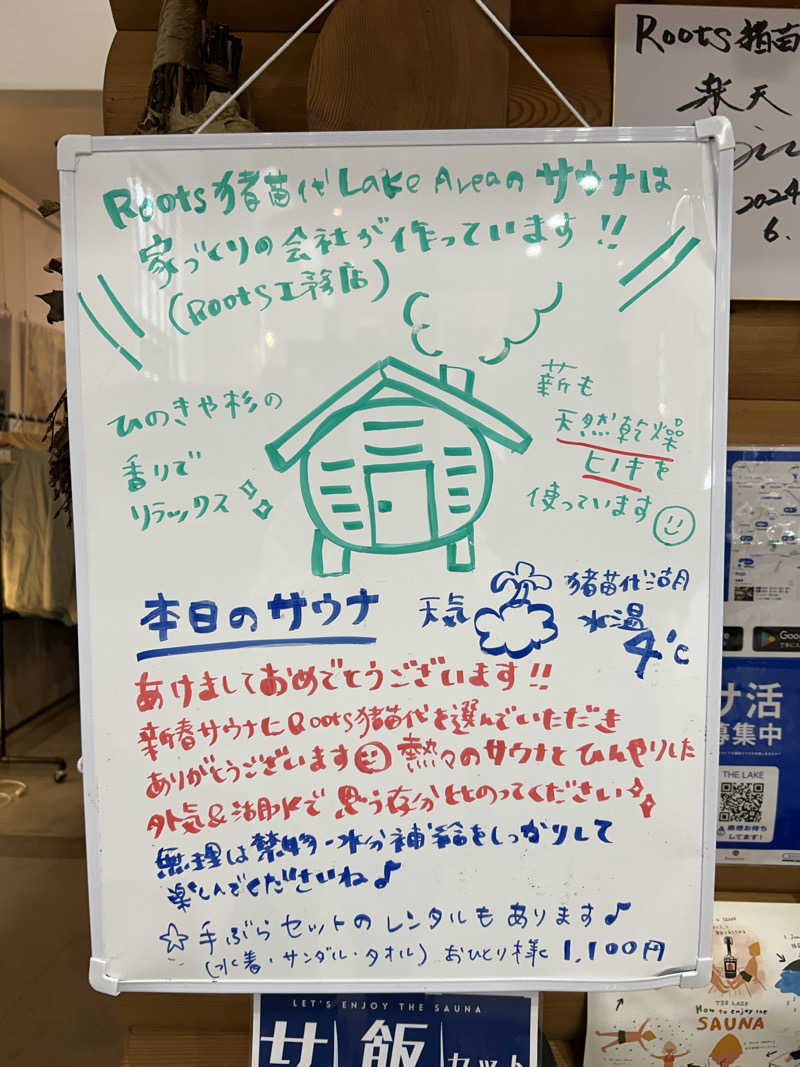 Roots猪苗代Lake Areaのサウナは
家づくりの会社が作っています!!
(Roots工務店)
ひのきや杉の
香りで
リラックス
薪も
天然乾燥
ヒノキを
使っています
本日のサウナ
天気
猪苗代湖
水温
4℃
あけましておめでとうございます!!
新春サウナにRoots猪苗代を選んでいただき
ありがとうございます 熱々のサウナとひんやりした
外気&湖水で思う存分ととのってください
無理は禁物-水分補給をしっかりして
楽しんでくださいね♪
☆手ぶらセットのレンタルもあります♪
(水着・サンダル・タオル) おひとり様 1,100円
Roots猪苗
楽天
2024
6.
サ活
募集中
THE LAKE
感想お待ち
してます!
LET'S ENJOY THE SAUNA
サ飯セット
THE LAKE
How to enjoy the
SAUNA